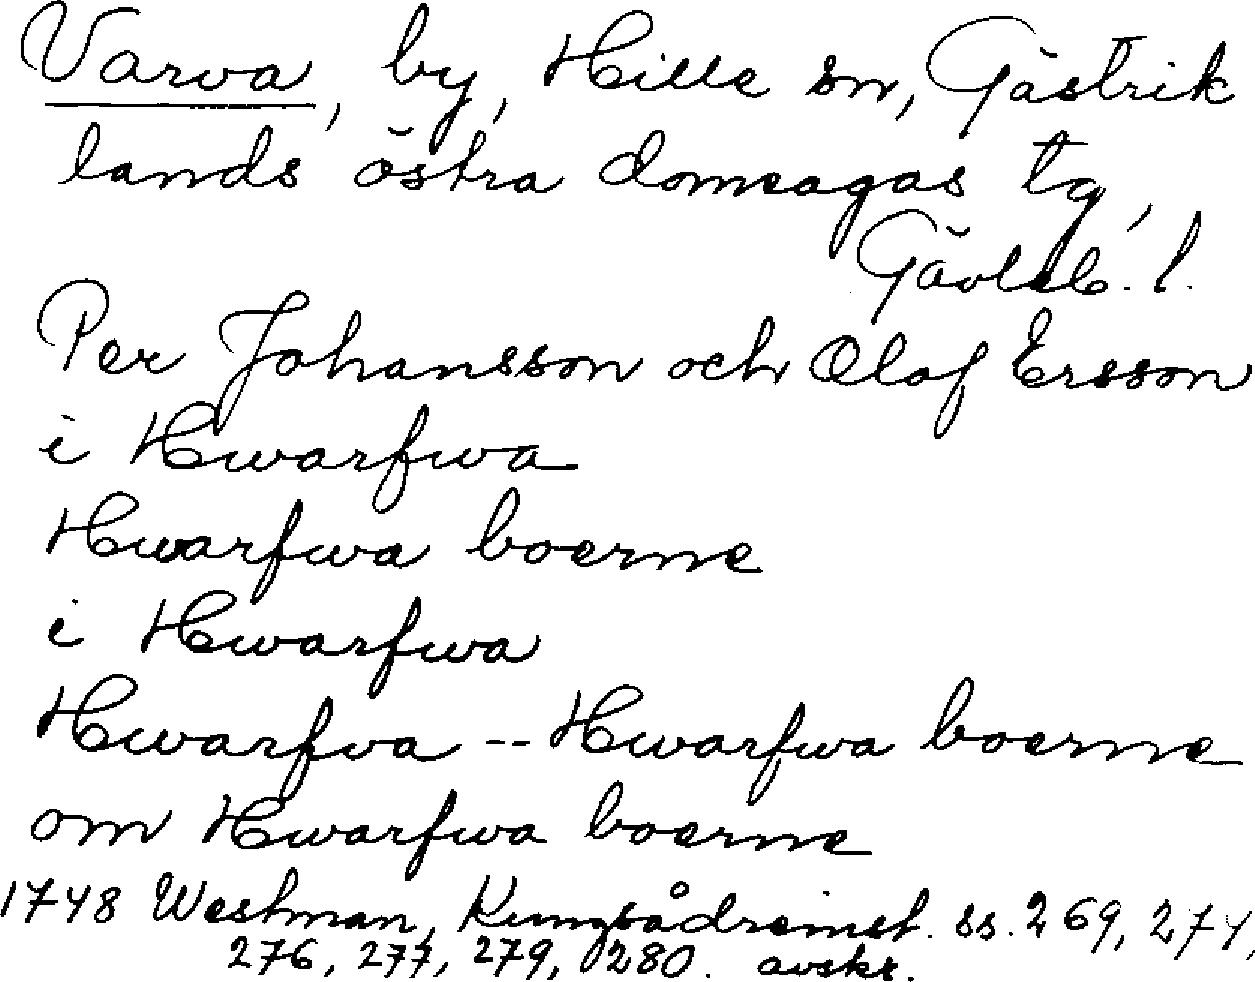 Varva, by, Hille sn, Gästrik
lands östra domsagas tg,
Gävleb. l.
Per Johansson och Olof Ersson
i Hwarfwa
Hwarfwa boerne
i Hwarfwa
Hwarfva -- Hwarfwa boerne
om Hwarfwa boerne
1748 Westman, Kungsådreinst. ss. 269, 274,
276, 277, 279, 280. avskr.